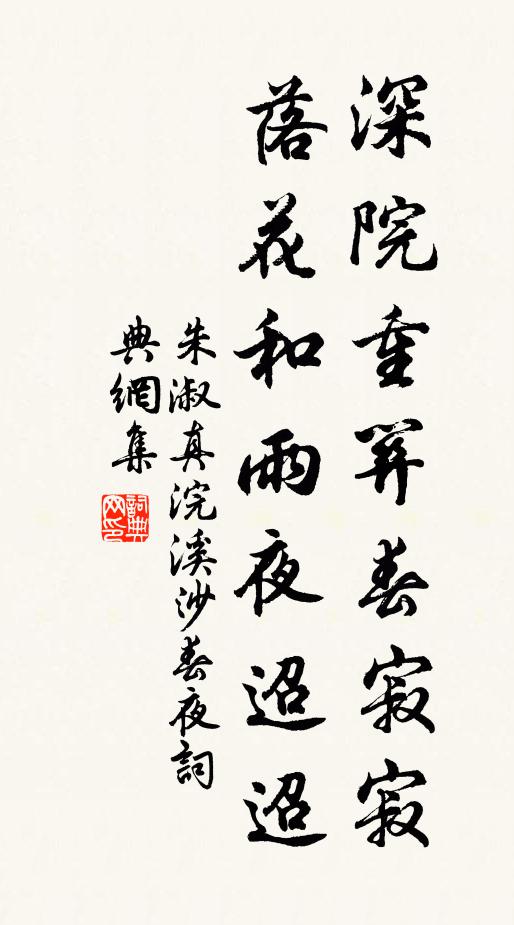 深院重關春寂寂
落花和雨夜迢迢
朱淑真浣溪沙春夜詞
典網集
詞典網印